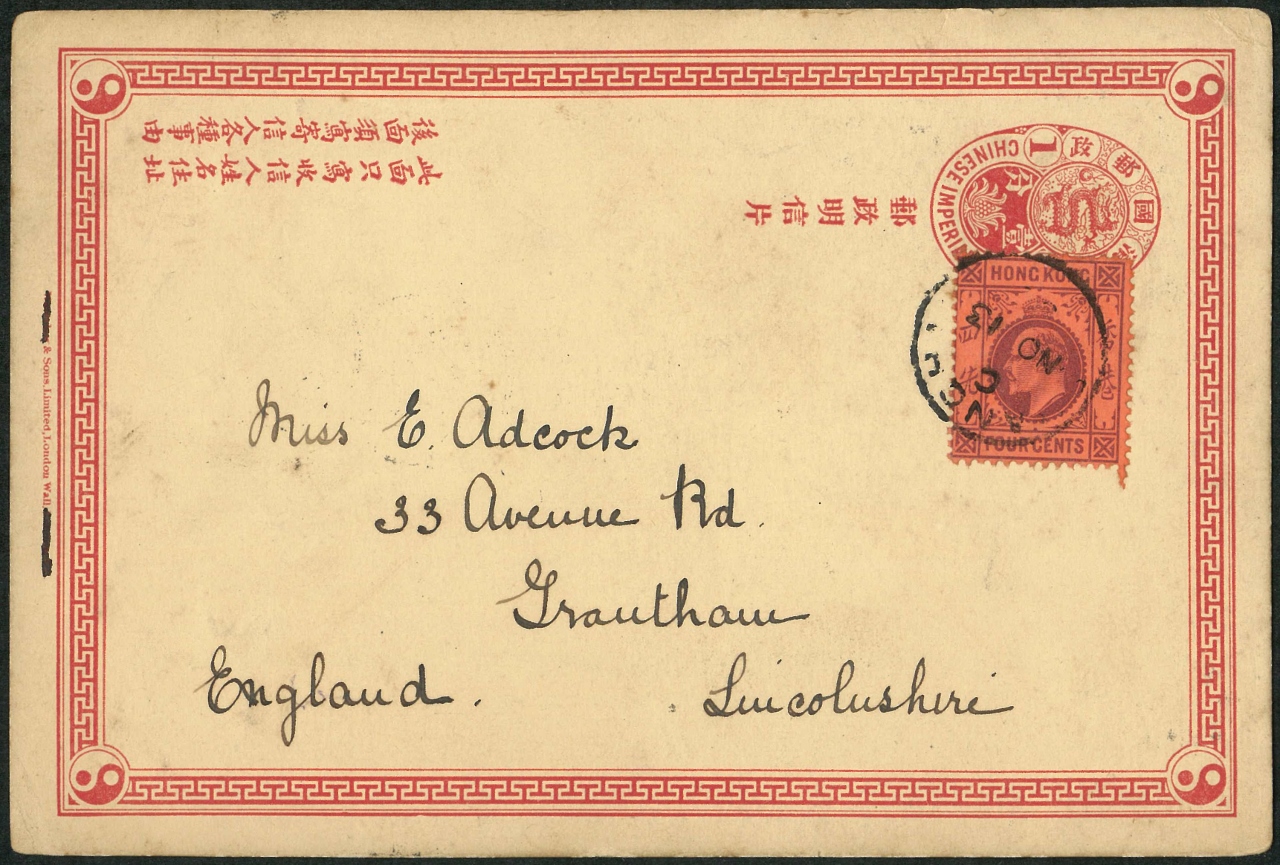 後面須寫寄信人各種事由
此面只寫收信人姓名住址
郵政明信片
國郵政
1
CHINESE IMPERI
壹分
HONG KONG
FOUR CENTS
C
13 NO
& Sons, Limited, London Wall
Miss E. Adcock
33 Avenue Rd.
Grantham
England.
Lincolnshire